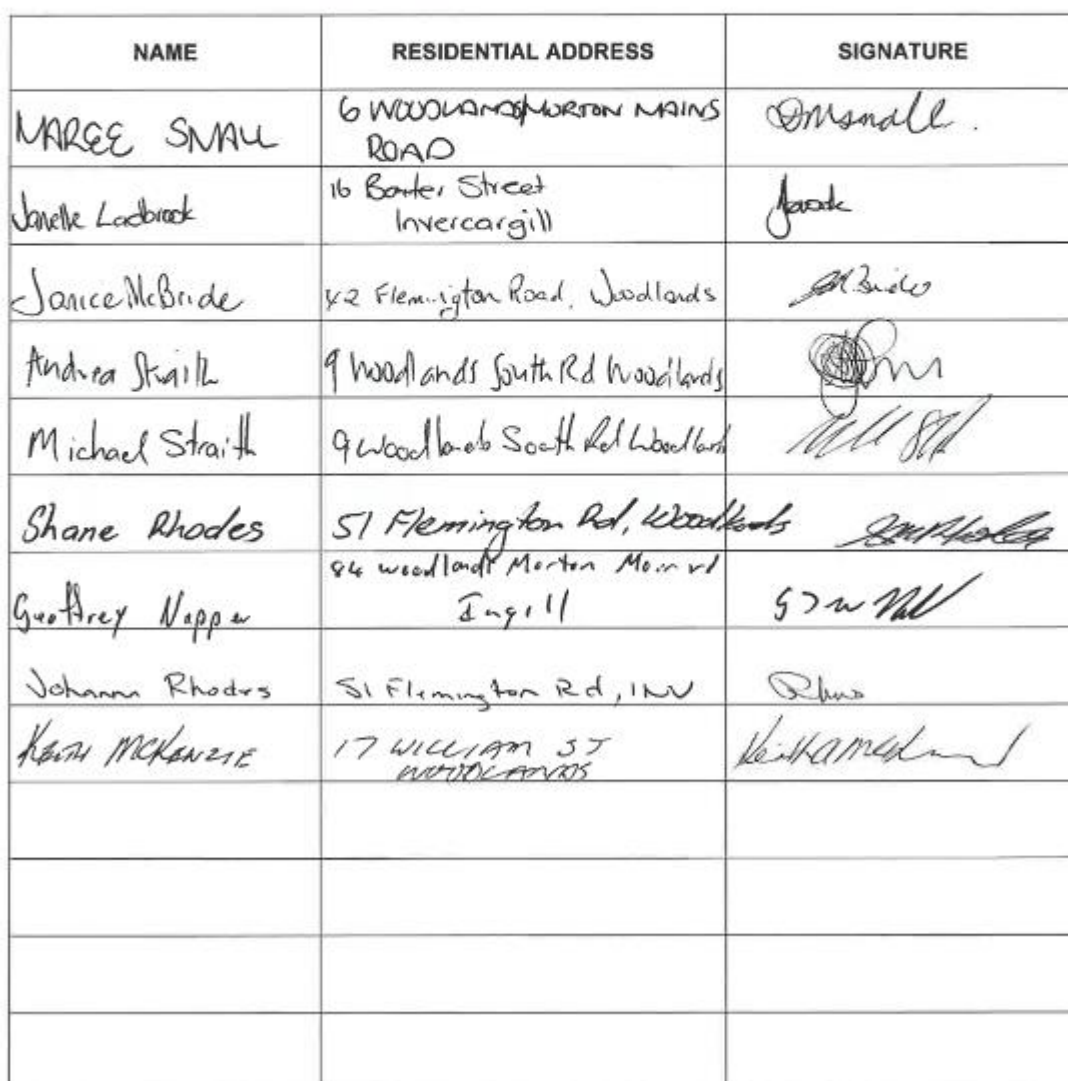 NAME RESIDENTIAL ADDRESS SIGNATURE
MAREE SMALL 6 WOODLANDS/MORTON MAINS DMSmall.
ROAD
Janelle Ladbrook 16 Baxter Street
Invercargill
Janice McBride 42 Flemington Road, Woodlands JMcBride
Andrea Straith 9 Woodlands South Rd Woodlands
Michael Straith 9 Woodlands South Rd Woodlands
Shane Rhodes 51 Flemington Rd, Woodlands
84 woodlands Morton Main rd
Geoffrey Napper Ingill
Johanna Rhodes 51 Flemington Rd, INV
KEITH MCKENZIE 17 WILLIAM ST
WOODLANDS